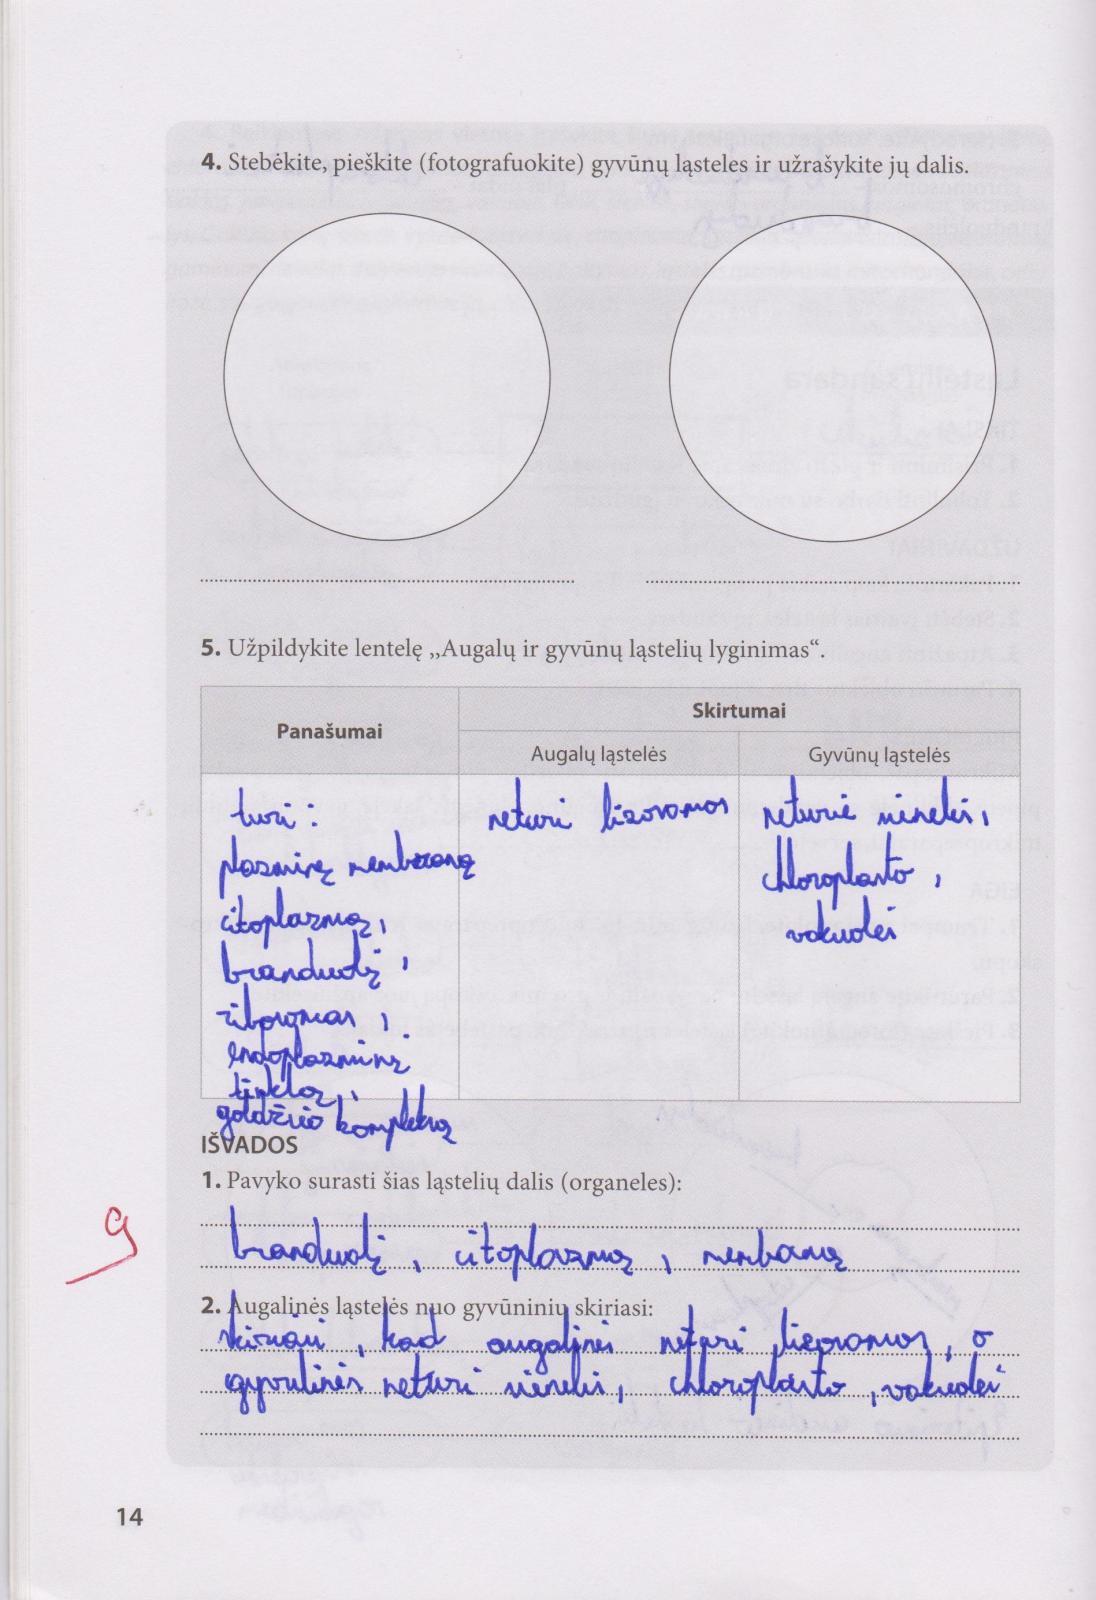 4. Stebėkite, pieškite (fotografuokite) gyvūnų ląsteles ir užrašykite jų dalis.
5. Užpildykite lentelę „Augalų ir gyvūnų ląstelių lyginimas“.
Panašumai
Skirtumai
Augalų ląstelės
Gyvūnų ląstelės
turi:
plazminę membraną
citoplazmą,
branduolį,
ribosomas,
endoplazminį
tinklą,
goldžio kompleksą
neturi lizosomos
neturi sienelės,
chloroplasto,
vakuolės
IŠVADOS
1. Pavyko surasti šias ląstelių dalis (organeles):
branduolį, citoplazmą, membaną
2. Augalinės ląstelės nuo gyvūninių skiriasi:
skiriasi, kad augalinės neturi lizosomos, o
gyvulinės neturi sienelės, chloroplasto, vakuolės
9
14